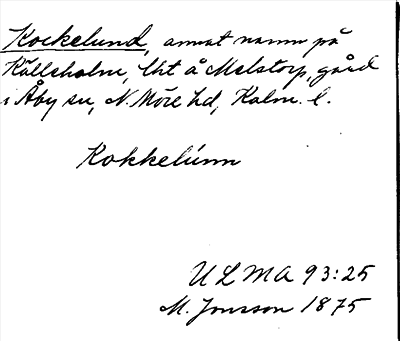 Kockelund, annat namn på
Källsholm, lht å Melstorp, gård
i Åby sn, N. Möre hd, Kalm. l.
Kokkelúnn
ULMA 93:25
M. Jonsson 1875